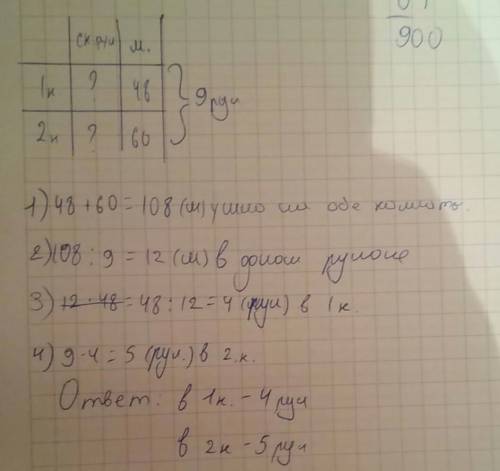 900
ск. рул м.
1к ? 48
2к ? 60
} 9 рул
1) 48 + 60 = 108 (м) ушло на обе комнаты.
2) 108 : 9 = 12 (м) в одном рулоне
3) 12 · 48 = 48 : 12 = 4 (рул) в 1к.
4) 9 - 4 = 5 (рул.) в 2.к.
Ответ: в 1к. - 4 рул
в 2к - 5 рул